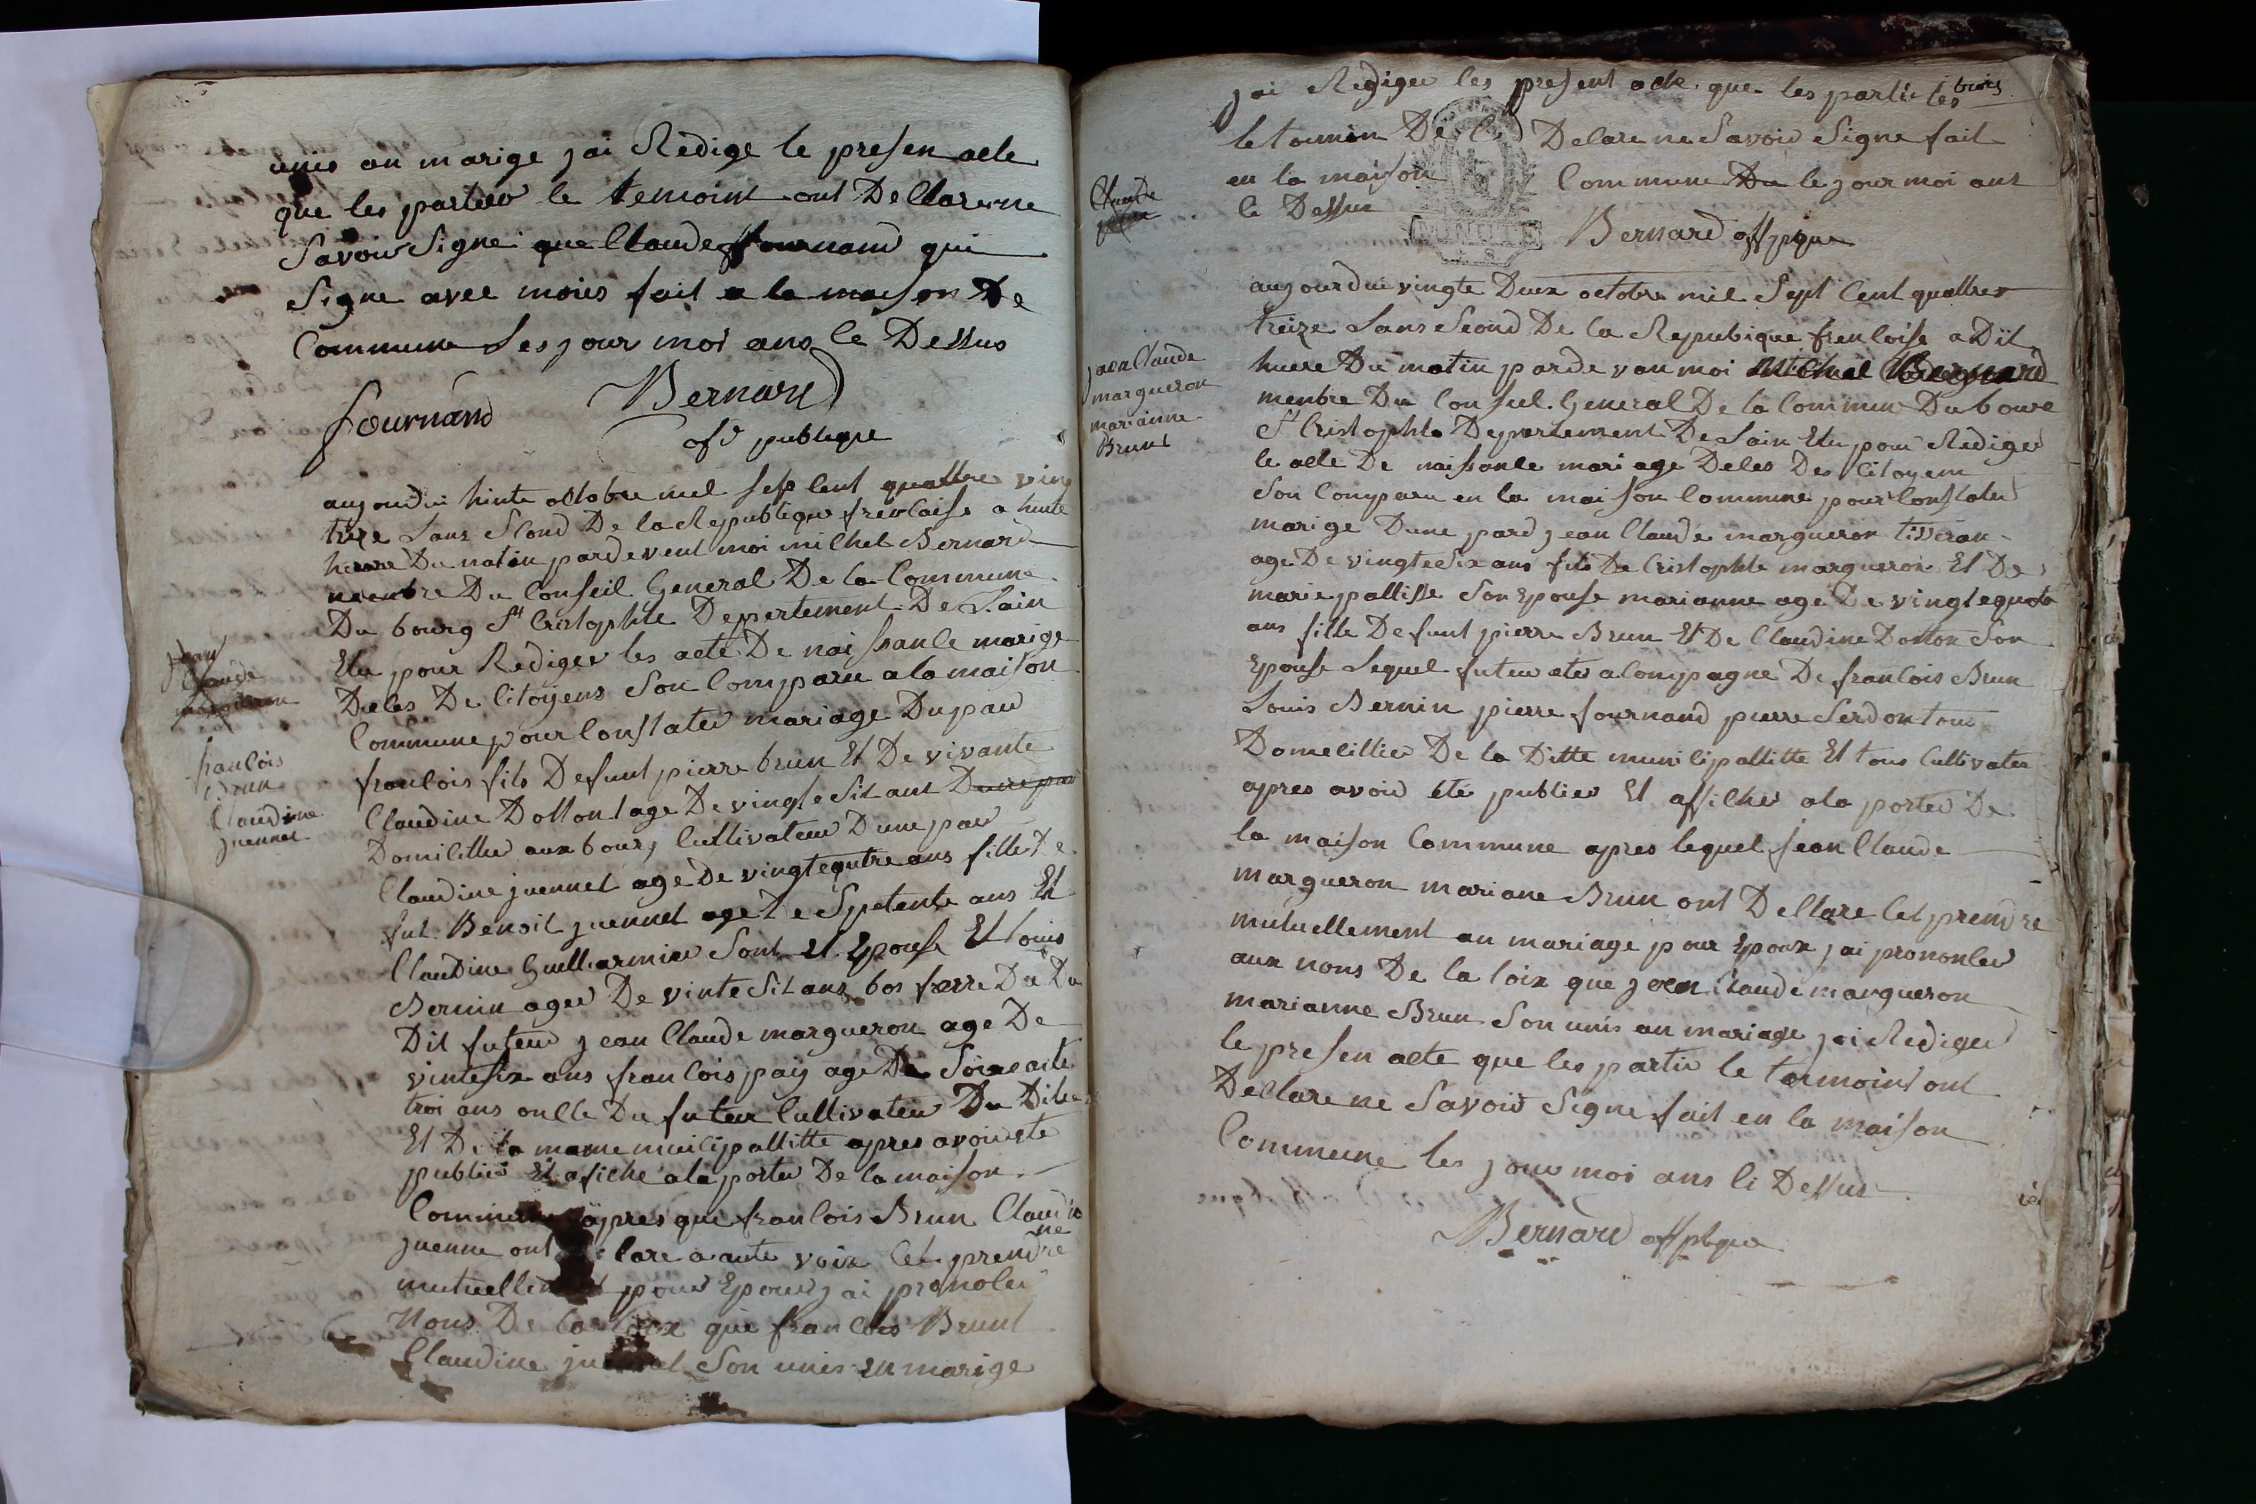 unis an marige jai Redige le presen acte
que les partier le temoint ont Dellarerne
Savoir Signe que Claude fournand qui
Signe avec moiis fait a la maison De
Commune Les jour moi ans le Dessus
fournand
Bernard
ofr publique
aujourdui hinte octobre mil sept cent quattre ving
trize Lans Scond De la Republique frenlaise a hinte
heure Du matin pardevent moi milhel Bernard
menbre Du Conseil General De la Commune
Du bourg St Cristophle Depertement De Lain
Elu pour Rediger les acte De naissanle marige
Deles De Citoyens Son Comparu a la maison
Commune pour Constater mariage Dupar
franlois fils Defunt pierre brun Et De vivante
Claudine Dotton tage De vingte Sit ant Dune par
Domilillie aux bourg Cultivateur Dune par
Claudine juennet age De vingtequtre ans fille De
fut Benoit juennet age De Spetente ans Et
Claudine Guilliarmier Sont Et Epouse Et louis
Bernin ager De vinte Sit ans bos frerre Du Du
Dit futeur jean Claude margueron age De
vintesix ans franlois pay age De Soixeante
troi ans onlle Du futeur Cultivateur Du Dilieu
Et De la meme munilipallitte apres avoir ete
publier Et afiche a la porter De la maison
Commune apres que franlois Brun Claudine
juenne ont lare a aute voix Cet prendre
mutuelle pour Epoux jai pronoler
Nous De la loix que franlois Brunt
Claudine ju Son unis en marige
jean
Claude
margueron
franlois
Brun
Claudine
juennet
trois
jai Rediger les present acte que les partie les
le toumin De Delare ne Savoir Signe fait
en la maison Commune Du le jour moi ans
le Dessus
Bernard off pque
MINUTE
Claude
aujourdui vingte Deux octobre mil Sept Cent quattre
treize Lans Seond De la Republique frenloise a Dit
heure Du matin pardevan moi Michel Bernard
menbre Du Conseil General De la Commun Du boure
St Cristophle Depertement De Lain Elu pour Rediger
le acte De naissanle mariage Deles Des Citoyem
Son Comparu en la maison Commune pour Constater
marige Dune pard jean Claude margueron tisseran
age De vingte Six ans fils De Cristophle margueron Et De
marie pallisse Son Epouse marianne age De vingtequatr
ans fille Defunt pierre Brun Et De Claudine Dotton Son
Epouse Lequel futeur ete alompagne De franlois Brun
Louis Bernin pierre fournand pierre Serdon tous
Domelillier De la Ditte munilipallitte Et tous Cultivater
apres avoir ete publier Et affilher a la porter De
la maison Commune apres lequel jean Claude
margueron mariane Brun ont Dellare Cet prendre
mutuellement an mariage pour Epoux jai prononler
aux nons De la loix que jean Claude margueron
marianne Brun Son unis an mariage jai Rediger
le presen acte que les partir le tormoint ont
Dellare ne Savoir Signe fait en la maison
Commune les jour moi ans li Dessus
Bernard off pbque
jean Claude
margueron
marianne
Brunt